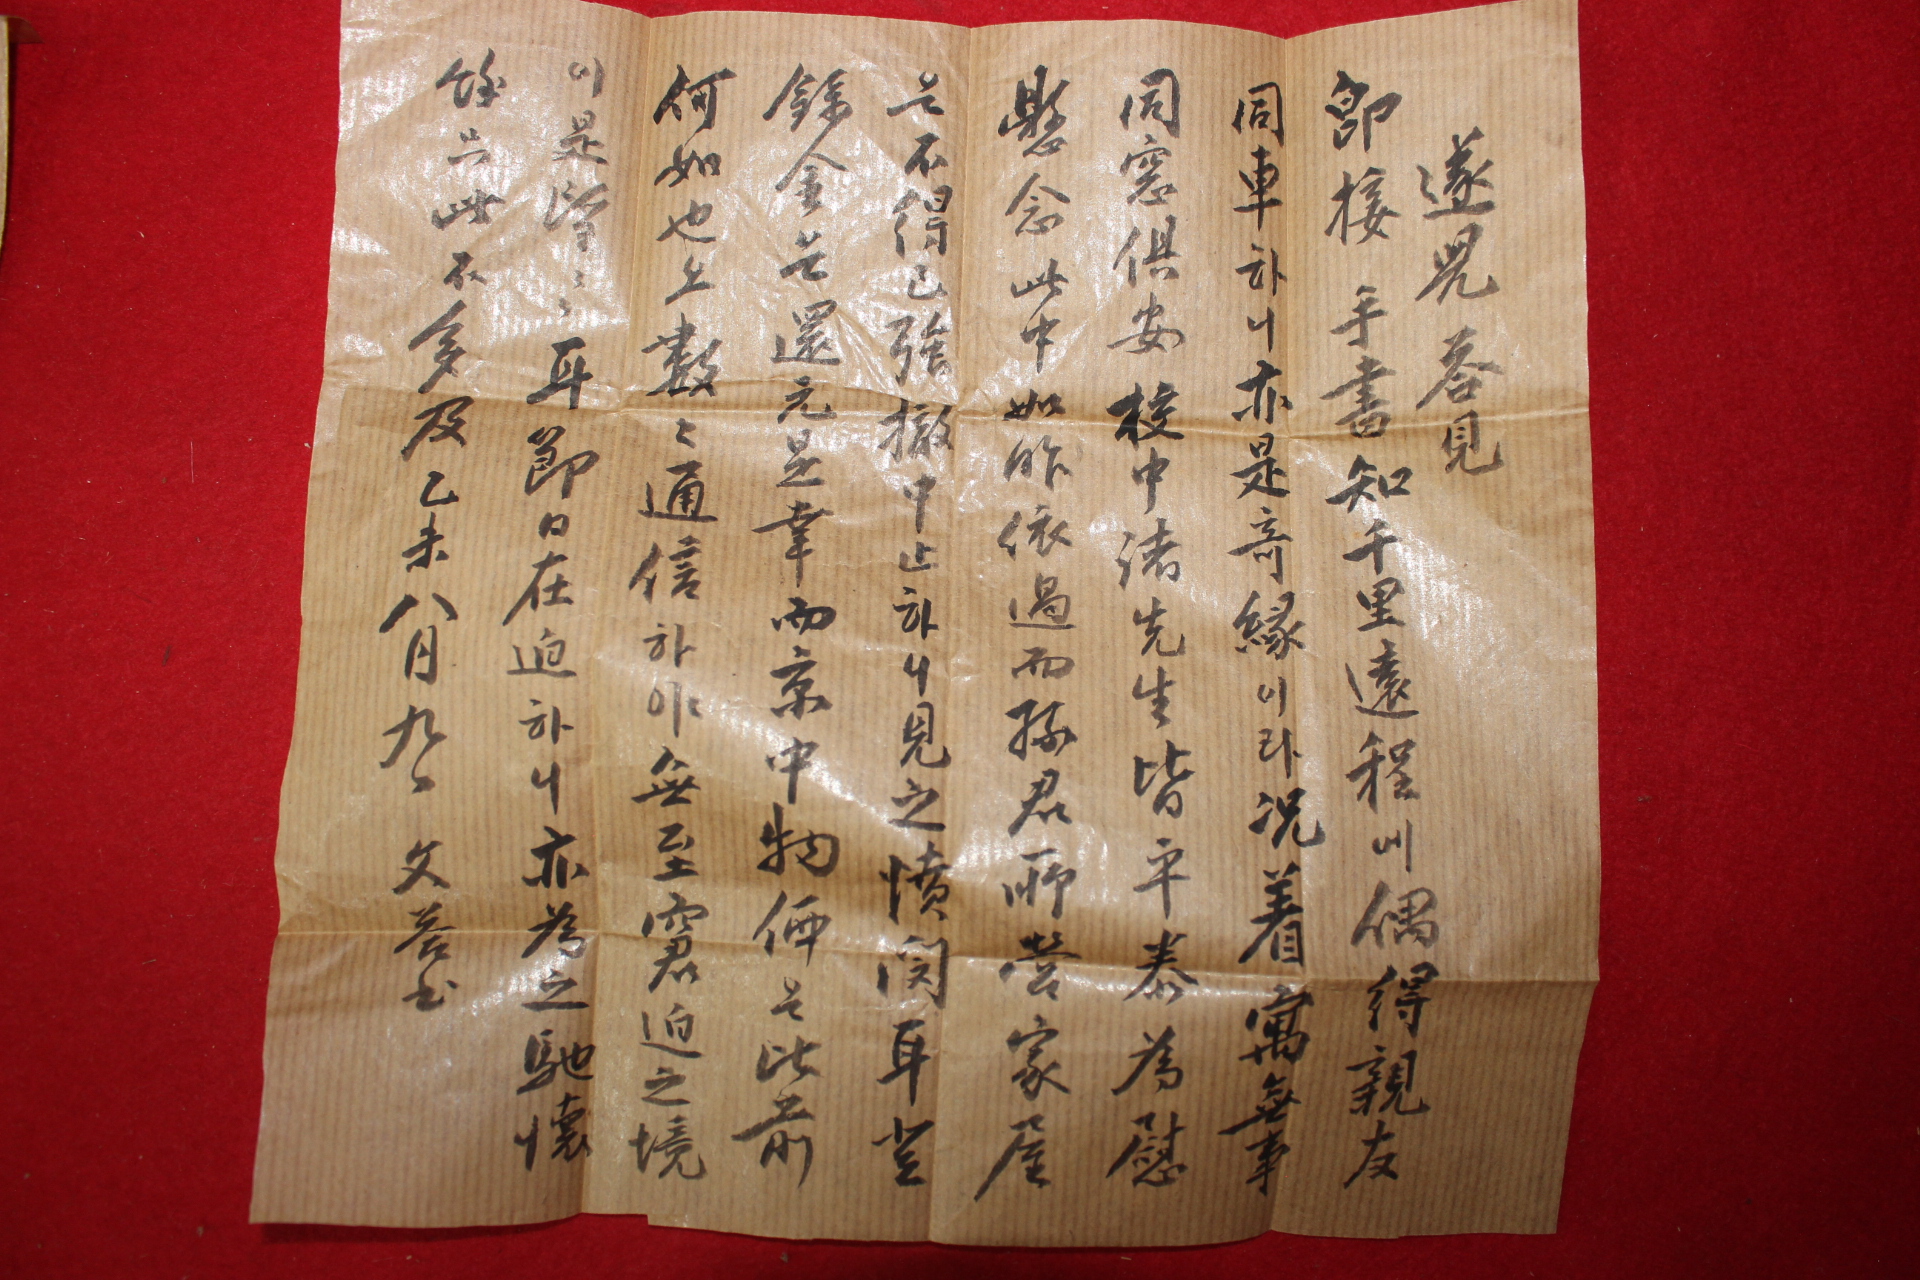 遂晃 答見
卽接 手書知千里遠程에偶得親友
同車하니亦是奇緣이라况着寓無事
同窓俱安 校中諸先生皆平泰爲慰
懸念此中如昨依過而孫君所營家屋
는不得已强撤中止하니見之憤悶耳登
錄金는還元是幸而京中物価는比前
何如也 數〻通信하야無至窘迫之境
이是望〻耳節日在迫하니亦爲之馳懷
餘 此不多及 乙未八月九日 父答書